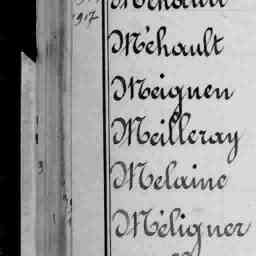 1917
Méhault
Meignen
Meilleray
Melaine
Méligner